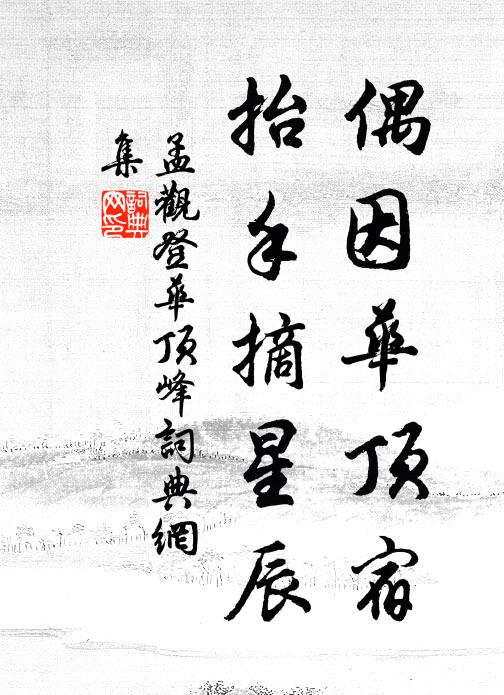 偶因華顶宿
抬手摘星辰
孟觀登華顶峰詞典網
集
詞典
网印